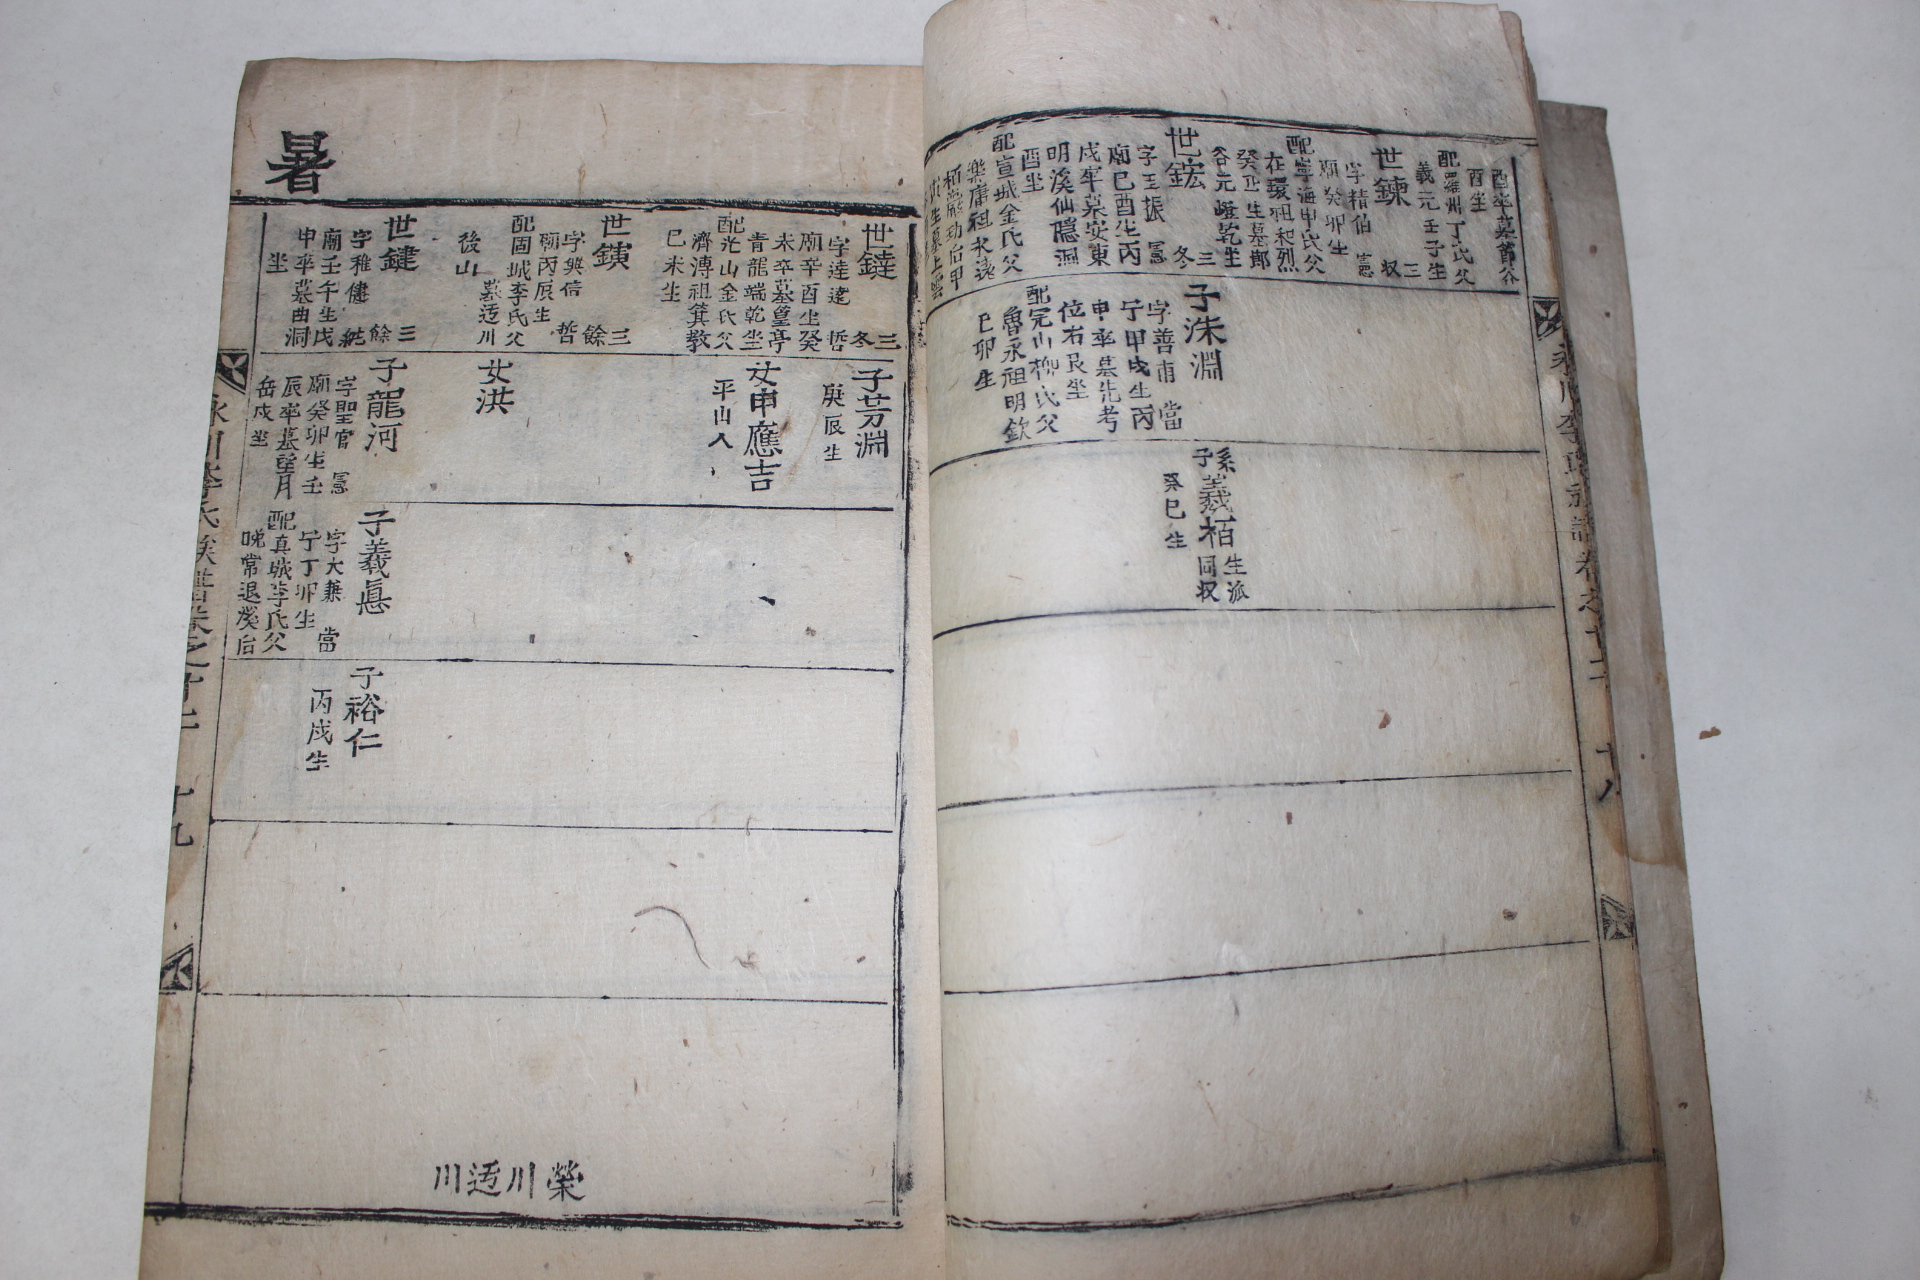 酉卒墓晉谷
酉坐
配羅州丁氏父
義元壬子生
世鍊
三
収
字精伯
憲
廟癸卯生
配寧海申氏父
在環祖和烈
癸丑生墓郎
谷元嶝乾坐
世鋐
三
冬
字玉振
憲
廟己酉生丙
戌卒墓安東
明溪仙隱洞
酉坐
配宣城金氏父
樂庸祖永遠
子洙淵
字善甫
當
宁甲戌生丙
申卒墓先考
位右艮坐
配完山柳氏父
魯永祖明欽
己卯生
系
子義栢
生派
同収
癸巳生
永川李氏族譜卷之廿二
廿八
暑
世鐽
三
冬
字達逵
哲
廟辛酉生癸
未卒墓篁亭
青龍端乾坐
配光山金氏父
濟溥祖箕敎
己未坐
世鐄
三
餘
字奐信
哲
廟丙辰生
配固城李氏父
墓迃川
後山
世鍵
三
餘
字稚健
純
廟壬午生戊
申卒墓曲洞
坐
子芳淵
庚辰生
女申應吉
平山人
女洪
子龍河
字聖官
憲
廟癸卯生壬
辰卒墓望月
岳戌坐
子義惪
字大兼
當
宁丁卯生
配真城李氏父
晩常退溪后
子裕仁
丙戌生
榮川迃川
十九